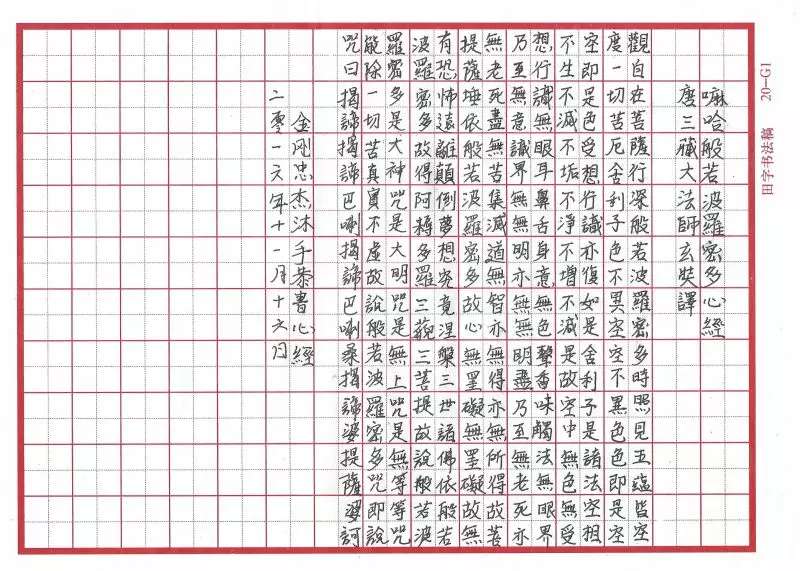 嘛哈般若波羅密多心經
唐三藏大法師玄奘譯
觀自在菩薩行深般若波羅密多時照見五蘊皆空
度一切苦厄舍利子色不異空空不異色色即是空
空即是色受想行識亦復如是舍利子是諸法空相
不生不滅不垢不淨不增不減是故空中無色無受
想行識無眼耳鼻舌身意無色聲香味觸法無眼界
乃至無意識界無無明亦無無明盡乃至無老死亦
無老死盡無苦集滅道無智亦無得亦無所得故菩
提薩埵依般若波羅密多故心無罣礙無罣礙故無
有恐怖遠離顛倒夢想究竟涅槃三世諸佛依般若
波羅密多故得阿耨多羅三藐三菩提故說般若波
羅密多是大神咒是大明咒是無上咒是無等等咒
能除一切苦真實不虛故說般若波羅密多咒即說
咒曰揭諦揭諦巴唎揭諦巴唎桑揭諦婆提薩婆訶
金剛忠杰沐手恭書心經
二零一六年十一月十六日
田字书法稿 20-G1